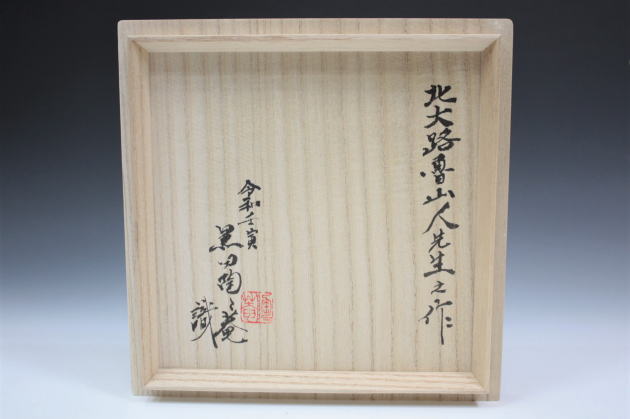 北大路魯山人先生之作
令和壬寅
黒田陶々菴
識